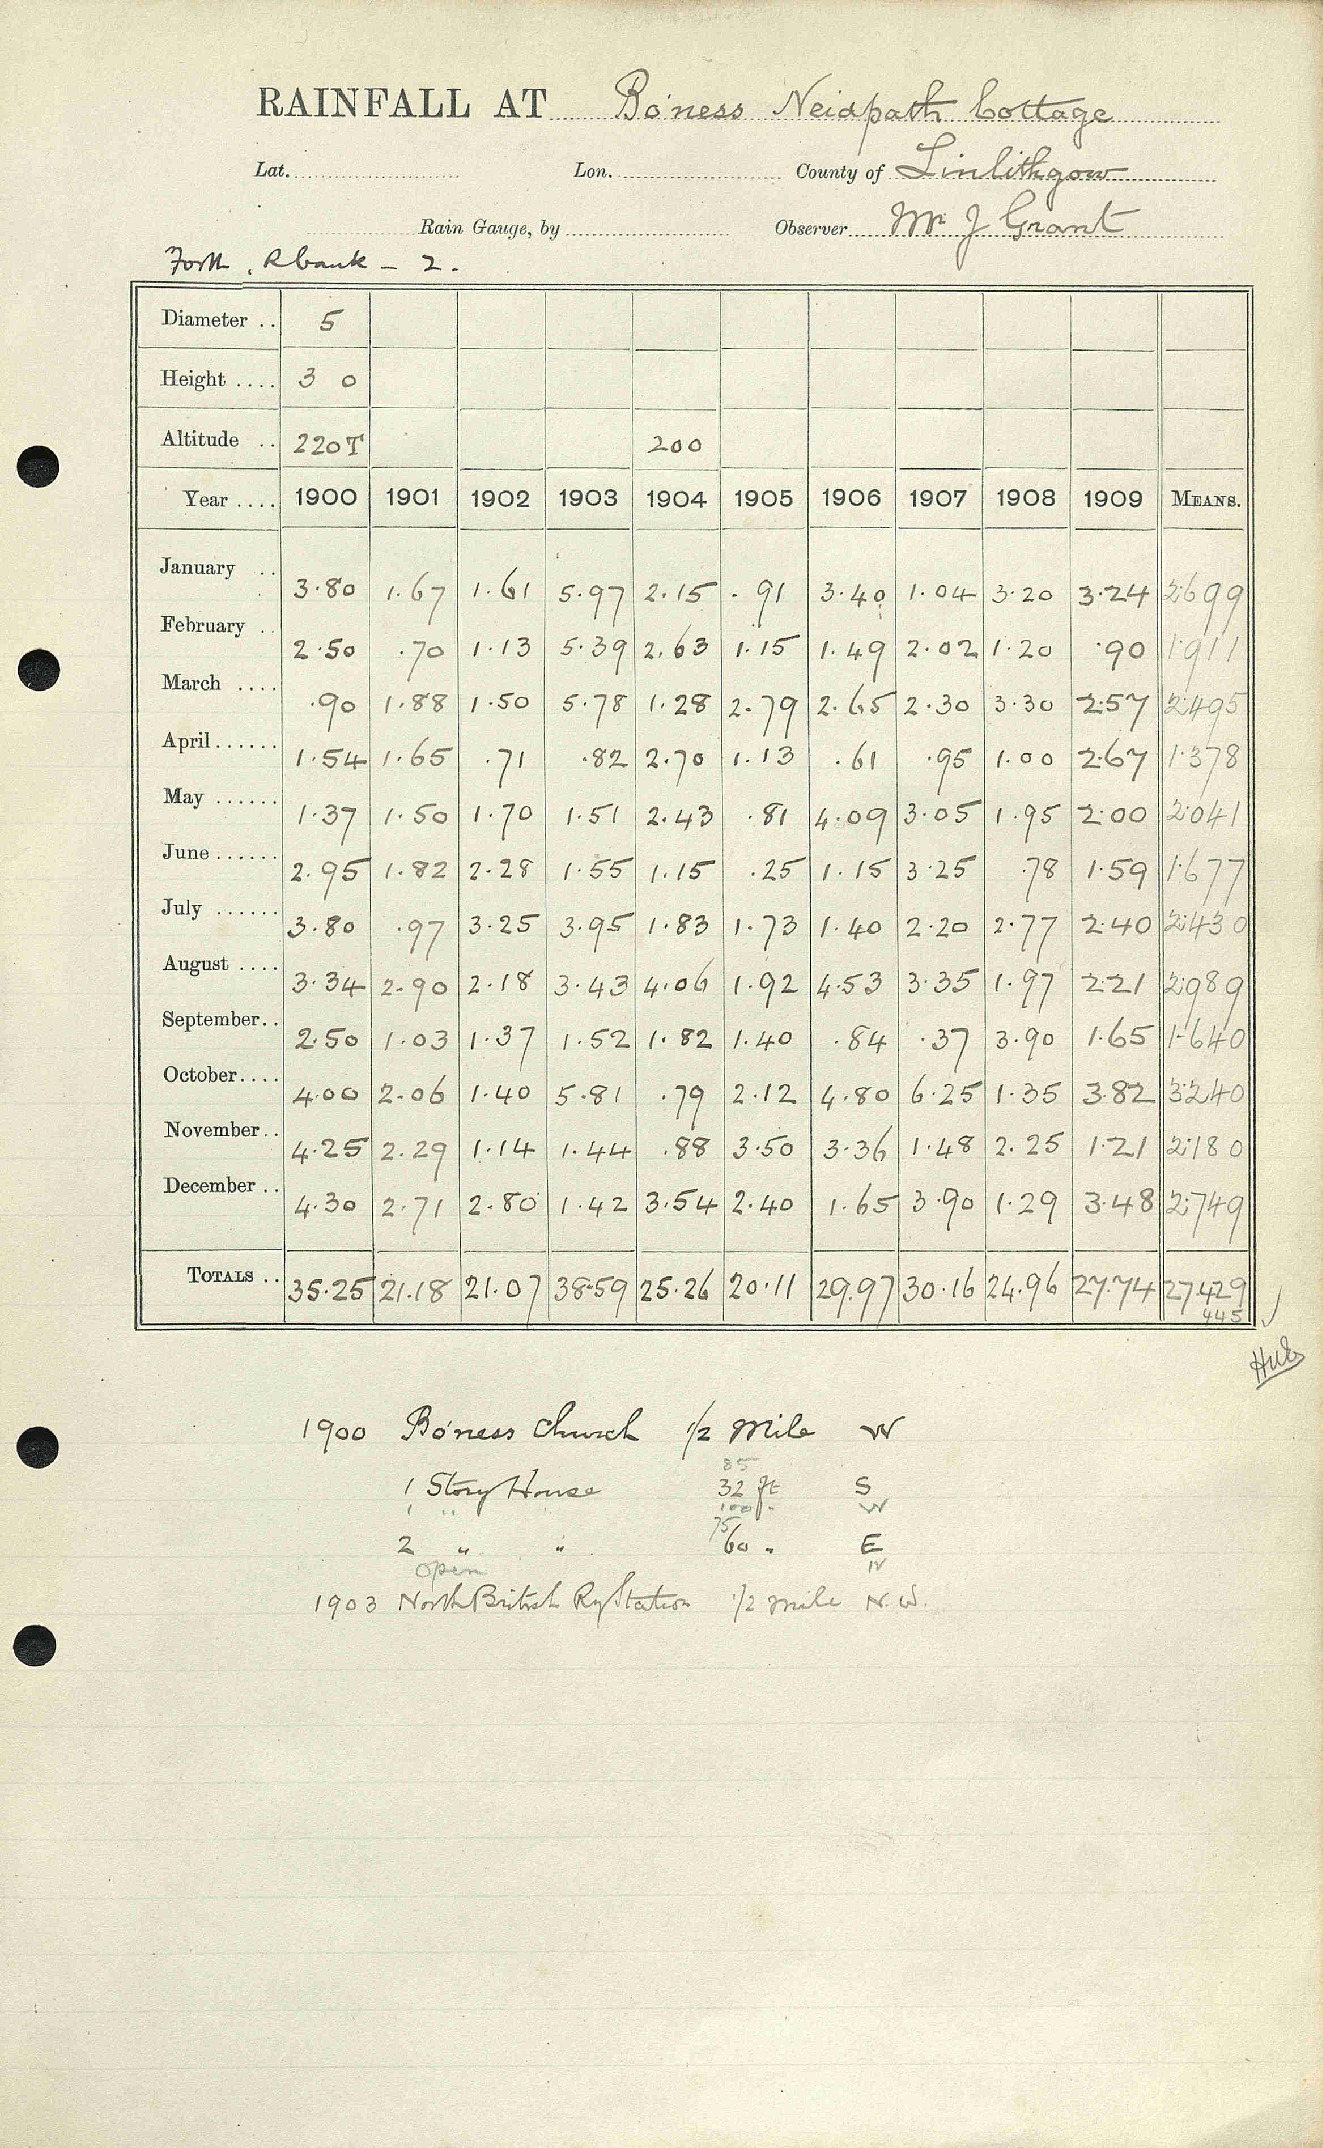 RAINFALL AT Bo'ness Neidpath Cottage
Lat. Lon. County of Linlithgow
Rain Gauge, by Observer Mr J Grant
Forth, Rbank - 2.
Diameter .. 5
Height .... 3 0
Altitude .. 220T 200
Year .... 1900 1901 1902 1903 1904 1905 1906 1907 1908 1909 MEANS.
January .. 3.80 1.67 1.61 5.97 2.15 .91 3.40 1.04 3.20 3.24 2.699
February .. 2.50 .70 1.13 5.39 2.63 1.15 1.49 2.02 1.20 .90 1.911
March .... .90 1.88 1.50 5.78 1.28 2.79 2.65 2.30 3.30 2.57 2.495
April...... 1.54 1.65 .71 .82 2.70 1.13 .61 .95 1.00 2.67 1.378
May ...... 1.37 1.50 1.70 1.51 2.43 .81 4.09 3.05 1.95 2.00 2.041
June...... 2.95 1.82 2.28 1.55 1.15 .25 1.15 3.25 .78 1.59 1.677
July ...... 3.80 .97 3.25 3.95 1.83 1.73 1.40 2.20 2.77 2.40 2.430
August .... 3.34 2.90 2.18 3.43 4.06 1.92 4.53 3.35 1.97 2.21 2.989
September.. 2.50 1.03 1.37 1.52 1.82 1.40 .84 .37 3.90 1.65 1.640
October.... 4.00 2.06 1.40 5.81 .79 2.12 4.80 6.25 1.35 3.82 3.240
November.. 4.25 2.29 1.14 1.44 .88 3.50 3.36 1.48 2.25 1.21 2.180
December .. 4.30 2.71 2.80 1.42 3.54 2.40 1.65 3.90 1.29 3.48 2.749
TOTALS .. 35.25 21.18 21.07 38.59 25.26 20.11 29.97 30.16 24.96 27.74 27.429
445
1900 Bo'ness Church 1/2 Mile W
85
1 Story House 32 ft S
1 " 100 " W
75
2 " " 60 " E
Open N
1903 North British Ry Station 1/2 mile N.W.